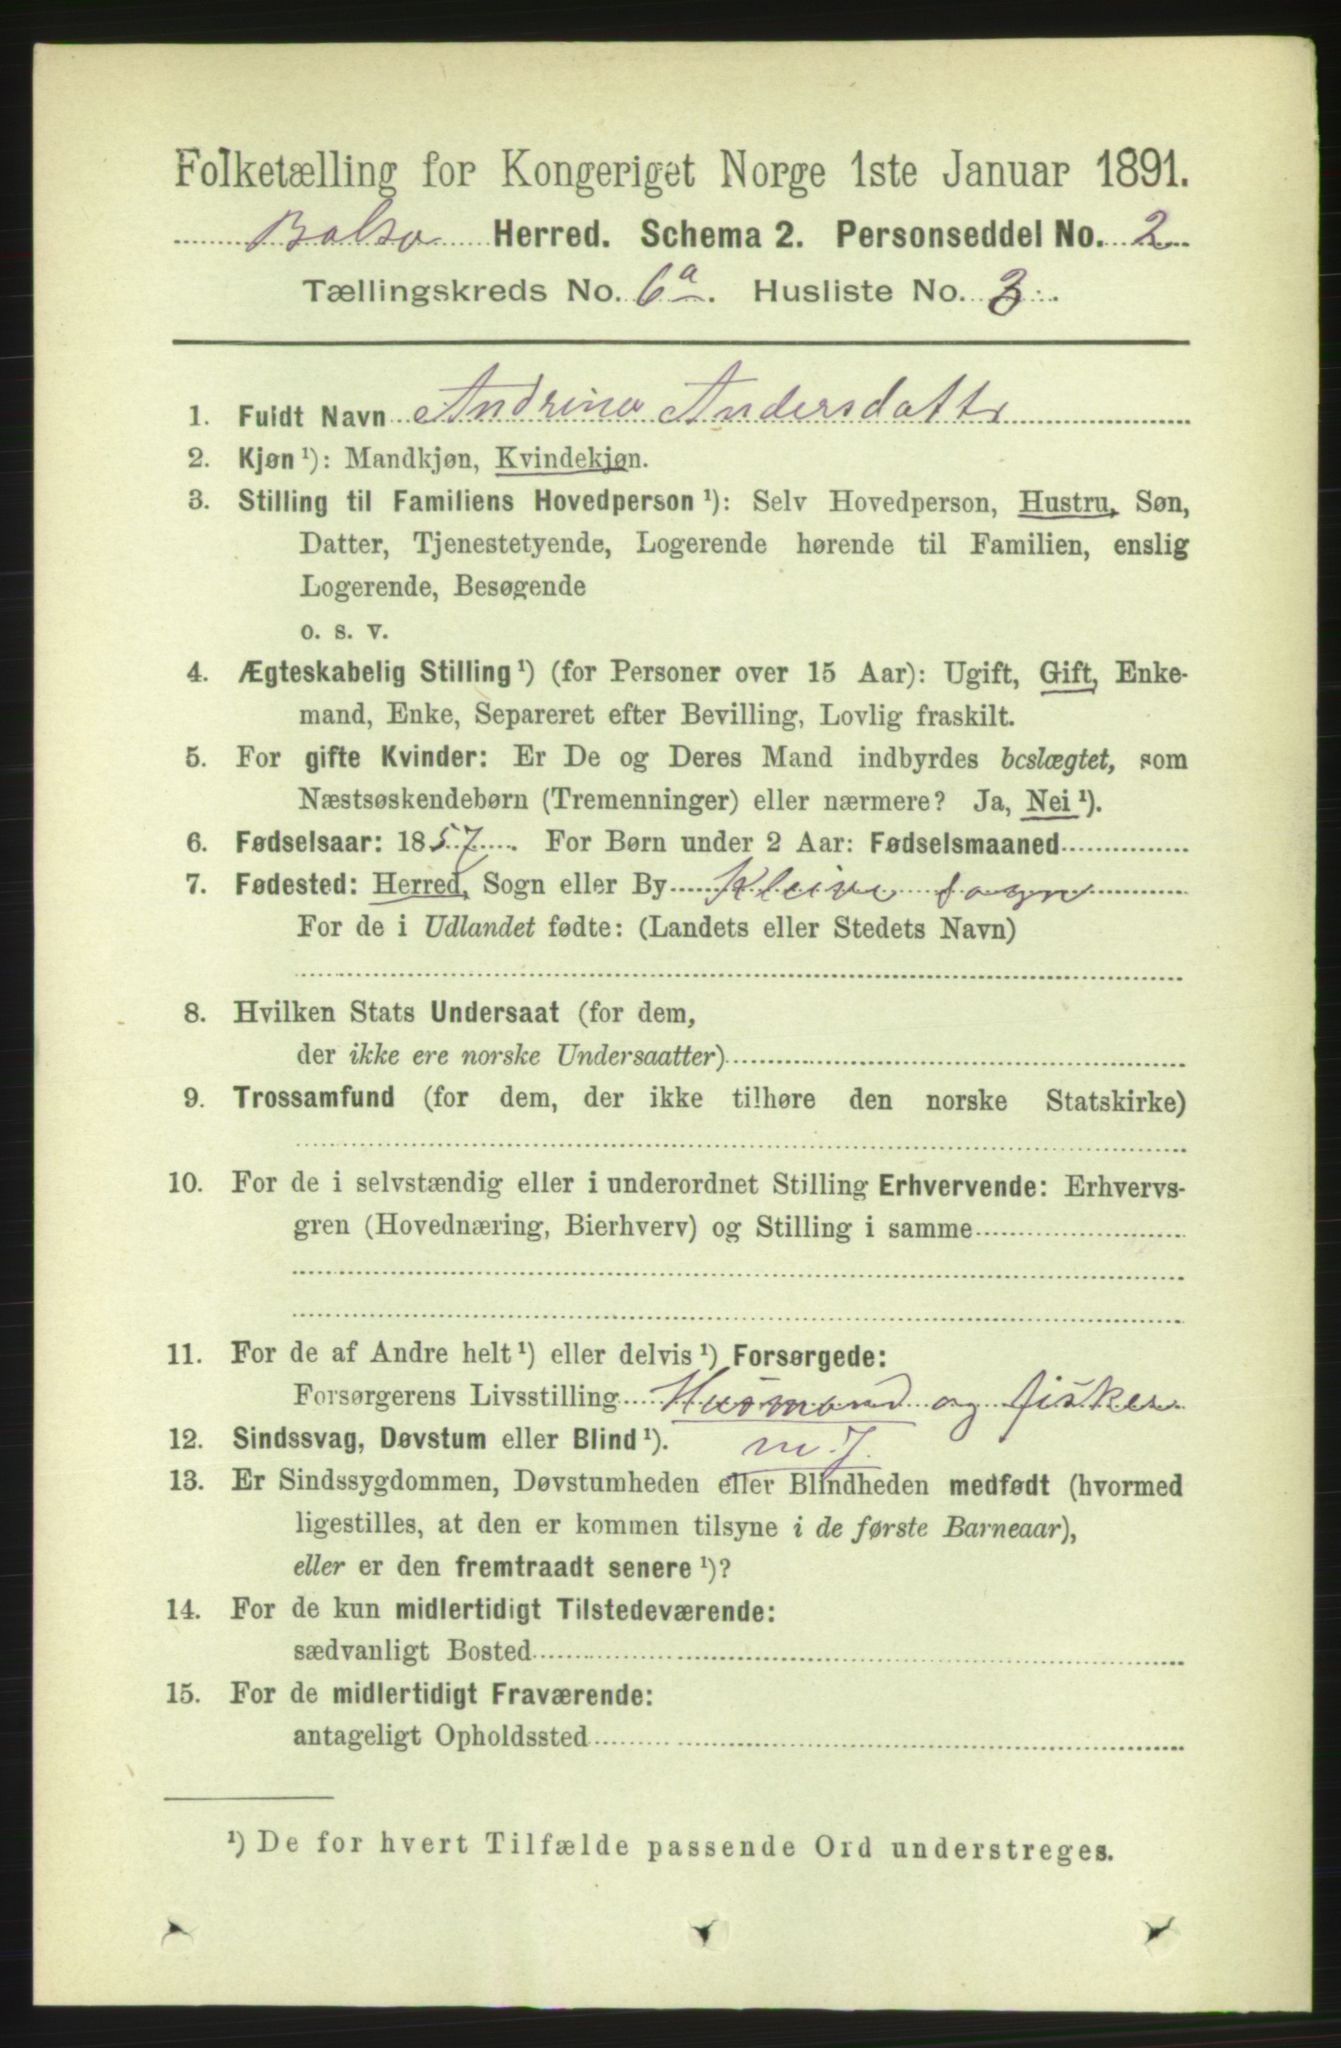 Folketælling for Kongeriget Norge 1ste Januar 1891.
Bolsø Herred. Schema 2. Personseddel No. 2
Tællingskreds No. 6a. Husliste No. 3.
1. Fuldt Navn Andrina Andersdatte
2. Kjøn ¹): Mandkjøn, Kvindekjøn.
3. Stilling til Familiens Hovedperson ¹): Selv Hovedperson, Hustru, Søn,
Datter, Tjenestetyende, Logerende hørende til Familien, enslig
Logerende, Besøgende
o. s. v.
4. Ægteskabelig Stilling ¹) (for Personer over 15 Aar): Ugift, Gift, Enke-
mand, Enke, Separeret efter Bevilling, Lovlig fraskilt.
5. For gifte Kvinder: Er De og Deres Mand indbyrdes beslægtet, som
Næstsøskendebørn (Tremenninger) eller nærmere? Ja, Nei ¹).
6. Fødselsaar: 1857. For Børn under 2 Aar: Fødselsmaaned
7. Fødested: Herred, Sogn eller By Kleive sogn
For de i Udlandet fødte: (Landets eller Stedets Navn)
8. Hvilken Stats Undersaat (for dem,
der ikke ere norske Undersaatter)
9. Trossamfund (for dem, der ikke tilhøre den norske Statskirke)
10. For de i selvstændig eller i underordnet Stilling Erhvervende: Erhvervs-
gren (Hovednæring, Bierhverv) og Stilling i samme
11. For de af Andre helt ¹) eller delvis ¹) Forsørgede:
Forsørgerens Livsstilling Husmand og fisker
12. Sindssvag, Døvstum eller Blind ¹). m. J.
13. Er Sindssygdommen, Døvstumheden eller Blindheden medfødt (hvormed
ligestilles, at den er kommen tilsyne i de første Barneaar),
eller er den fremtraadt senere ¹)?
14. For de kun midlertidigt Tilstedeværende:
sædvanligt Bosted
15. For de midlertidigt Fraværende:
antageligt Opholdssted
¹) De for hvert Tilfælde passende Ord understreges.